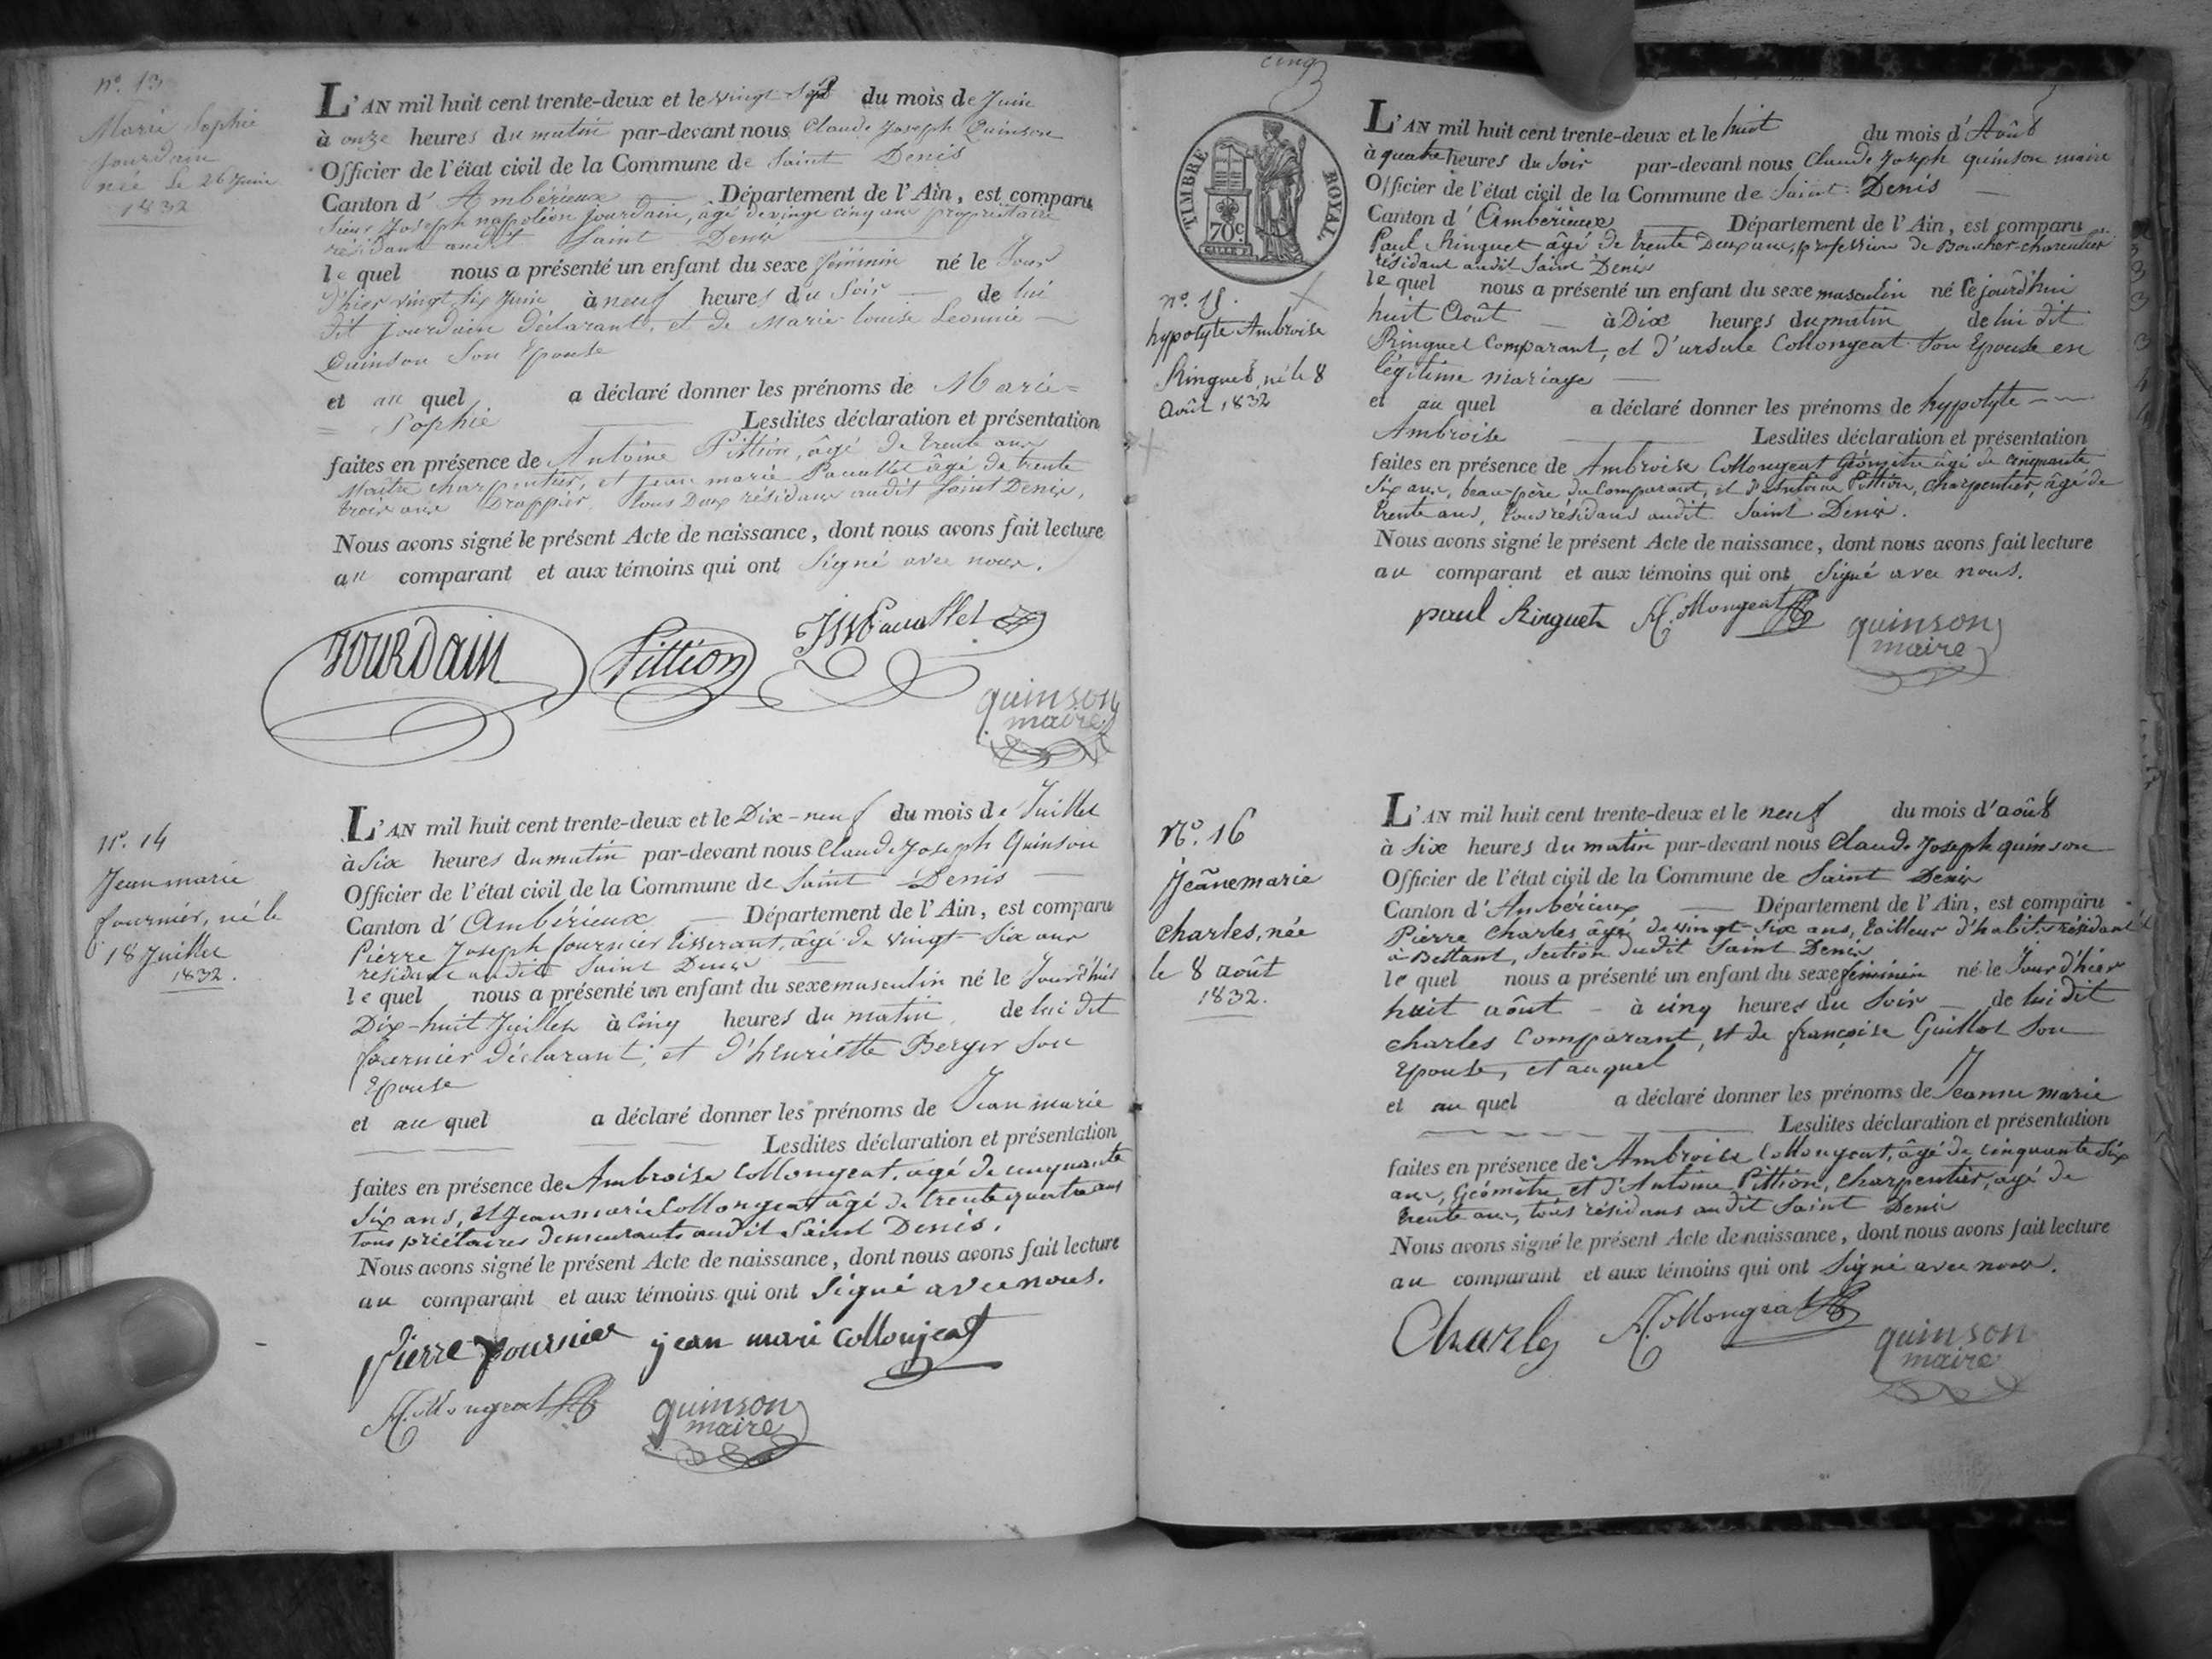 n.º 13
Marie Sophie
jourdain
née le 26 Juin
1832
L'AN mil huit cent trente-deux et le vingt sept du mois de Juin
à onze heures du matin par-devant nous Claude Joseph Quinson
Officier de l'état civil de la Commune de Saint Denis
Canton d'Ambérieux Département de l'Ain, est comparu
Sieur Joseph napoléon Jourdain, âgé de vingt cinq ans propriétaire
résidant audit Saint Denis
le quel nous a présenté un enfant du sexe féminin né le Jour
d'hier vingt six Juin à neuf heures du Soir de lui
dit jourdain Déclarant, et de Marie louise Leonnie
Quinson Son Epouse
et au quel a déclaré donner les prénoms de Marie=
= Sophie Lesdites déclaration et présentation
faites en présence de Antoine Pittion, âgé de trente ans
Maître charpentier, et Jean marie âgé de trente
trois ans Drappier, tous Deux résidans audit Saint Denis,
Nous avons signé le présent Acte de naissance, dont nous avons fait lecture
au comparant et aux témoins qui ont Signé avec nous.
JOURDAIN Pittion
quinson
maire
n.º 14
Jean marie
fournier, né le
18 Juillet
1832.
L'AN mil huit cent trente-deux et le Dix-neuf du mois de Juillet
à Six heures du matin par-devant nous Claude Joseph Quinson
Officier de l'état civil de la Commune de Saint Denis
Canton d'Ambérieux Département de l'Ain, est comparu
Pierre Joseph fournier tisserant, âgé de vingt-Six ans
résidant audit Saint Denis
le quel nous a présenté un enfant du sexe masculin né le Jourd'hui
Dix-huit Juillet à Cinq heures du matin de lui dit
fournier Déclarant, et d'henriette Berger Son
Epouse
et au quel a déclaré donner les prénoms de Jean marie
Lesdites déclaration et présentation
faites en présence de Ambroise Collongeat, âgé de cinquante
Six ans, et Jean marie Collongeat âgé de trente quatre ans
tous priétaires demeurants audit Saint Denis.
Nous avons signé le présent Acte de naissance, dont nous avons fait lecture
au comparant et aux témoins qui ont Signé avec nous.
Pierre fournier jean mari collonjeat
A. Collongeat quinson
maire
cinq
TIMBRE ROYAL
70c.
n.º 15.
hypolyte Ambroise
Ringuet, né le 8
Août 1832
L'AN mil huit cent trente-deux et le huit du mois d'Août
à quatre heures du Soir par-devant nous Claude Joseph quinson maire
Officier de l'état civil de la Commune de Saint Denis
Canton d'Ambérieux Département de l'Ain, est comparu
Paul Ringuet âgé de trente Deux ans, profession de Boucher charcutier
résidant audit Saint Denis
le quel nous a présenté un enfant du sexe masculin né le jourd'hui
huit Août à Dix heures du matin de lui dit
Ringuet Comparant, et d'ursule Collongeat Son Epouse en
légitime mariage
et au quel a déclaré donner les prénoms de hypolyte
Ambroise Lesdites déclaration et présentation
faites en présence de Ambroise Collongeat Géomètre âgé de cinquante
Six ans, beau-père du Comparant, et d'Antoine Pittion, Charpentier, âgé de
trente ans, tous résidans audit Saint Denis.
Nous avons signé le présent Acte de naissance, dont nous avons fait lecture
au comparant et aux témoins qui ont Signé avec nous.
paul Ringuet A. Collongeat quinson
maire
N.º 16
Jeanemarie
Charles, née
le 8 août
1832.
L'AN mil huit cent trente-deux et le neuf du mois d'août
à Six heures du matin par-devant nous Claude Joseph quinson
Officier de l'état civil de la Commune de Saint Denis
Canton d'Ambérieux Département de l'Ain, est comparu
Pierre Charles âgé de vingt-Six ans, tailleur d'habits résidant
à Bettant, Section dudit Saint Denis
le quel nous a présenté un enfant du sexe féminin né le Jour d'hier
huit août à cinq heures du Soir de lui dit
Charles Comparant, et de françoise Guillot Son
Epouse, et auquel
et au quel a déclaré donner les prénoms de Jeanne marie
Lesdites déclaration et présentation
faites en présence de Ambroise Collongeat, âgé de cinquante Six
ans, Géomètre et d'Antoine Pittion, Charpentier, âgé de
trente ans, tous résidans audit Saint Denis
Nous avons signé le présent Acte de naissance, dont nous avons fait lecture
au comparant et aux témoins qui ont Signé avec nous.
Charles A. Collongeat quinson
maire